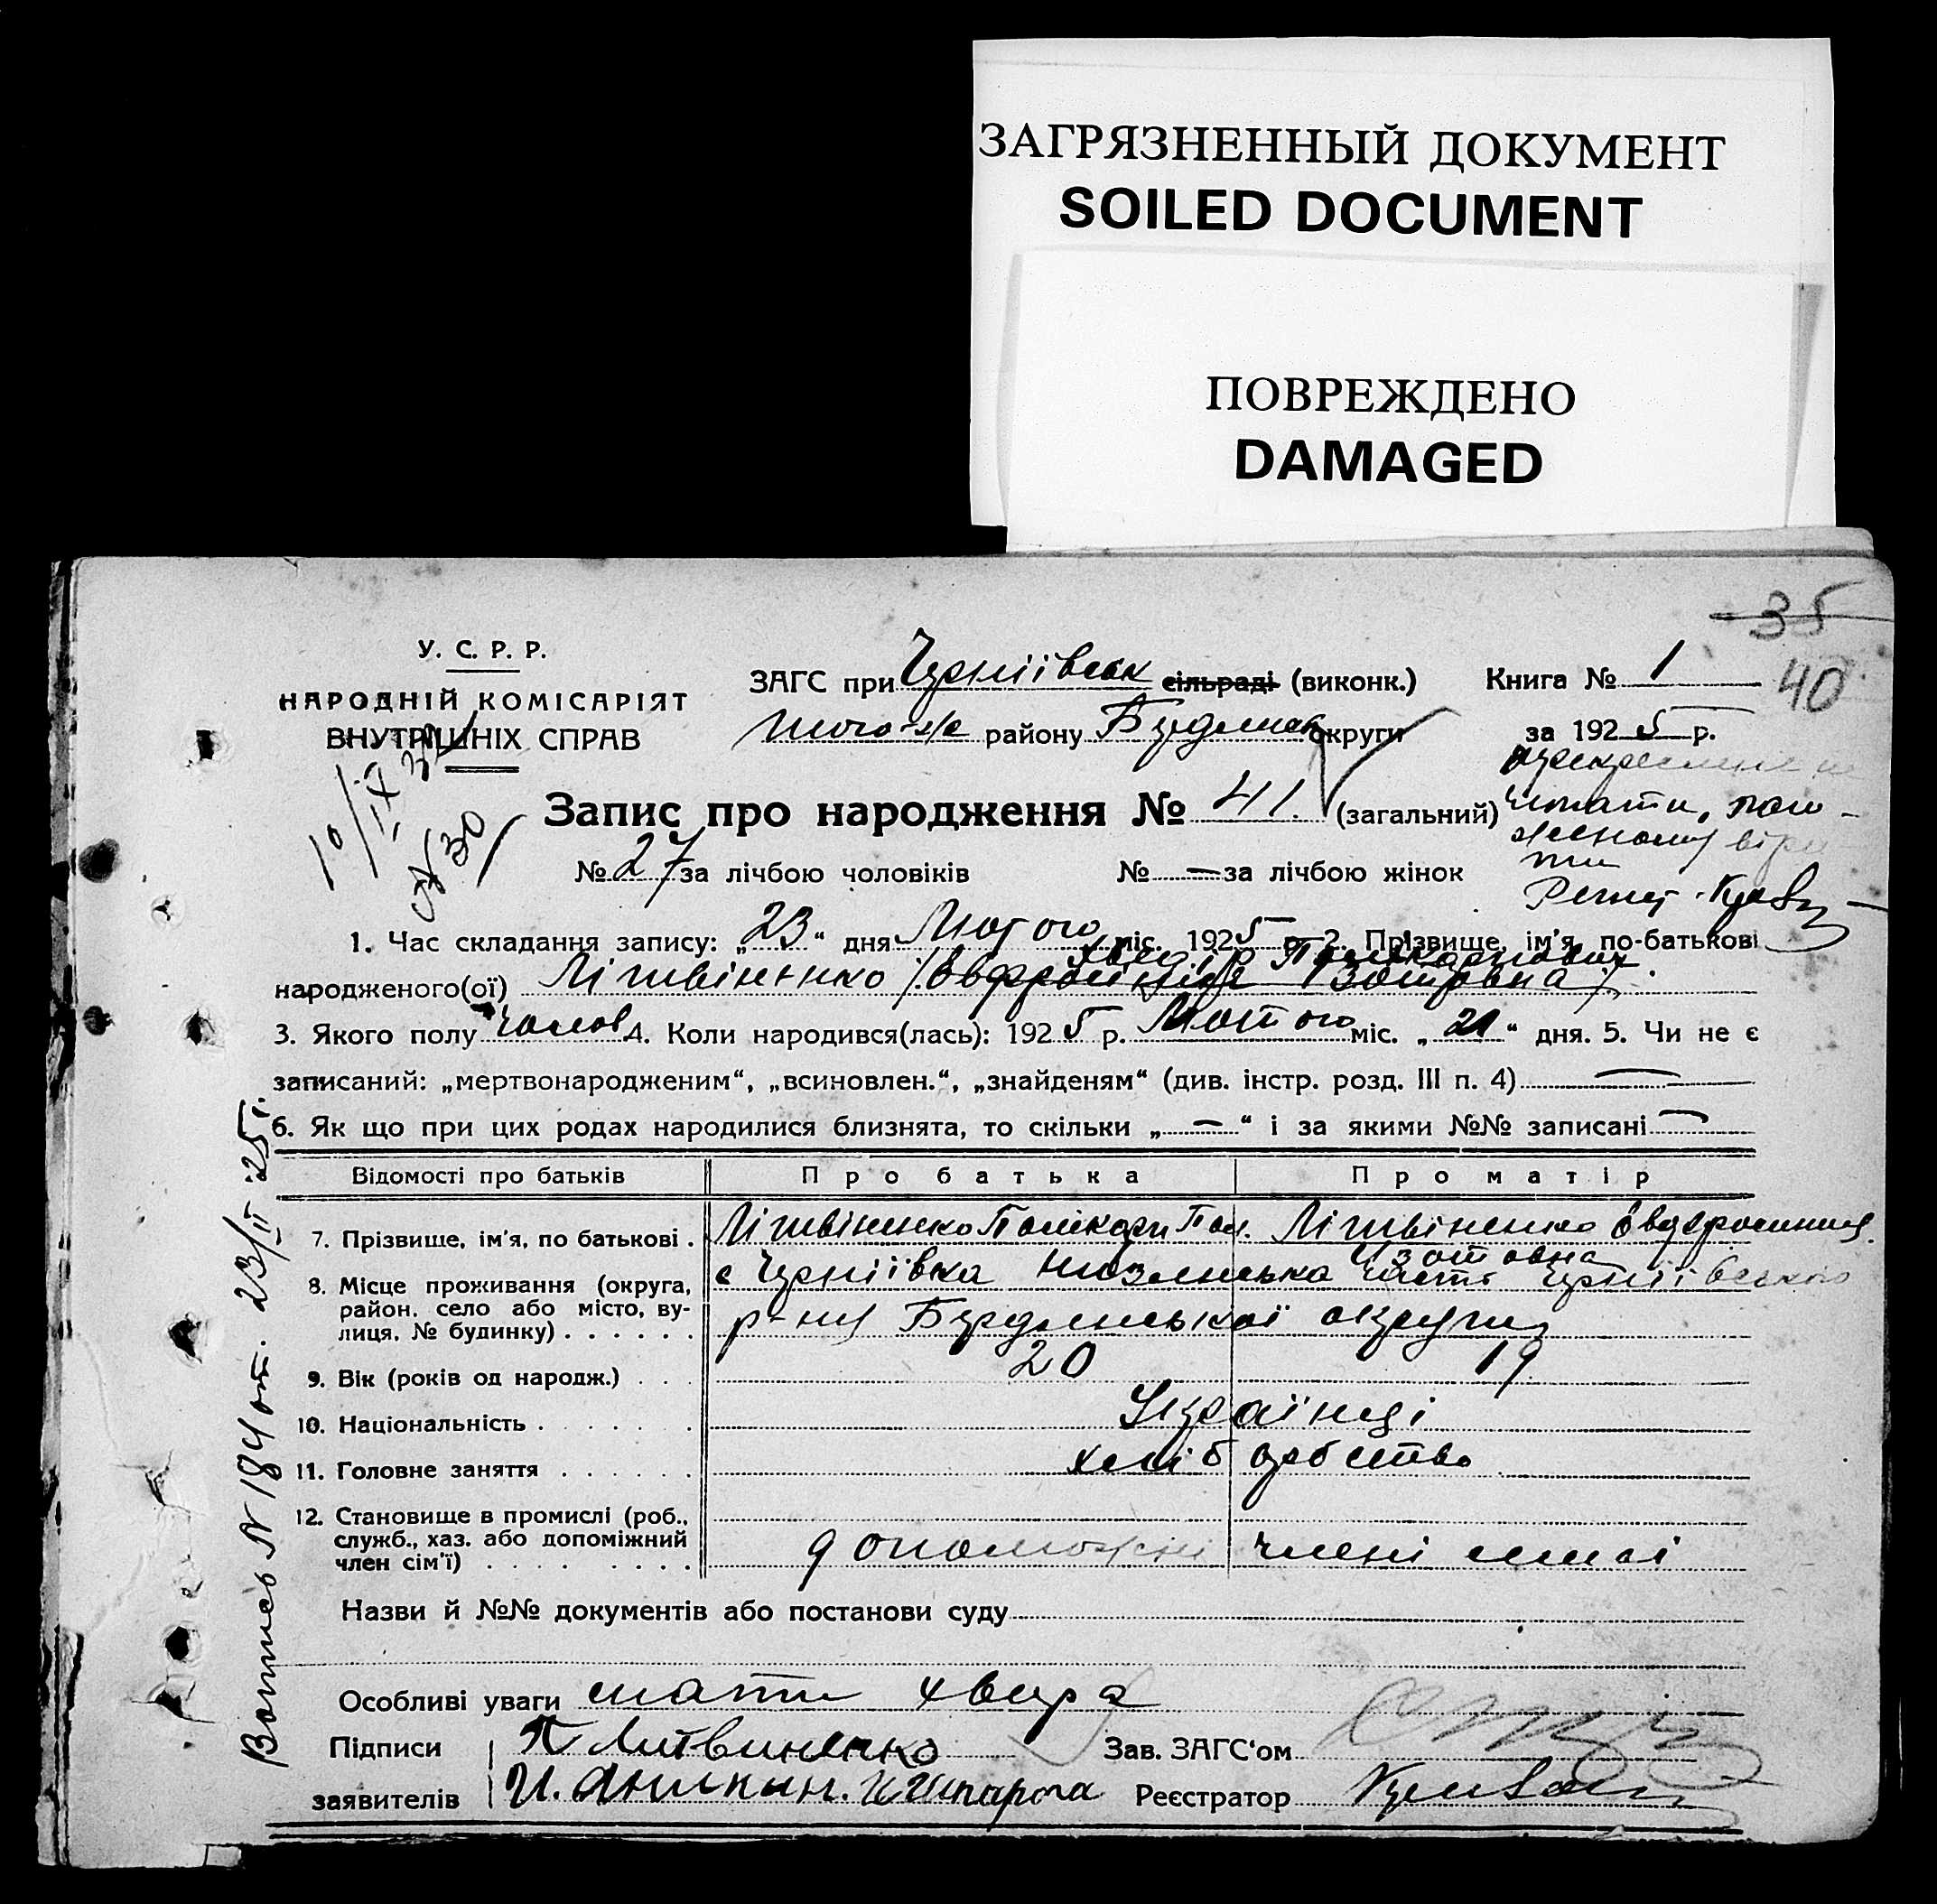 ЗАГРЯЗНЕННЫЙ ДОКУМЕНТ
SOILED DOCUMENT
ПОВРЕЖДЕНО
DAMAGED
35
40
У. С. Р. Р.
НАРОДНІЙ КОМІСАРІЯТ
ВНУТРІШНІХ СПРАВ
ЗАГС при Черніівськ сільраді (виконк.)
Книга № 1
того-ж району Бердянськ округи
за 1925 р.
Запис про народження № 41. (загальний)
№ 27 за лічбою чоловіків № — за лічбою жінок
10/IX 32
№ 30
1. Час складання запису: „23“ дня Лютого міс. 1925 р. 2. Прізвище, ім'я, по-батькові
Полікарпович
народженого(ої) Літвіненко
3. Якого полу чолов 4. Коли народився(лась): 1925 р. Лютого міс. „21“ дня. 5. Чи не є
записаний: „мертвонародженим“, „всиновлен.“, „знайденям“ (див. інстр. розд. III п. 4) —
6. Як що при цих родах народилися близнята, то скільки „—“ і за якими №№ записані —
Відомості про батьків Про батька Про матір
7. Прізвище, ім'я, по батькові . Літвіненко Полікарп Пол. Літвіненко
Изотовна
8. Місце проживання (округа, район, село або місто, вулиця, № будинку) с Черніівка Черніівського
р-ну Бердянської округи
9. Вік (років од народж.) 20 19
10. Національність Українці
11. Головне заняття хліборобство
12. Становище в промислі (роб., служб., хаз. або допоміжний член сім'ї) допоможні члені
Назви й №№ документів або постанови суду
Особливі уваги мати хвора
Підписи П Литвиненко Зав. ЗАГС'ом
заявителів Реєстратор
23/II 25 г.